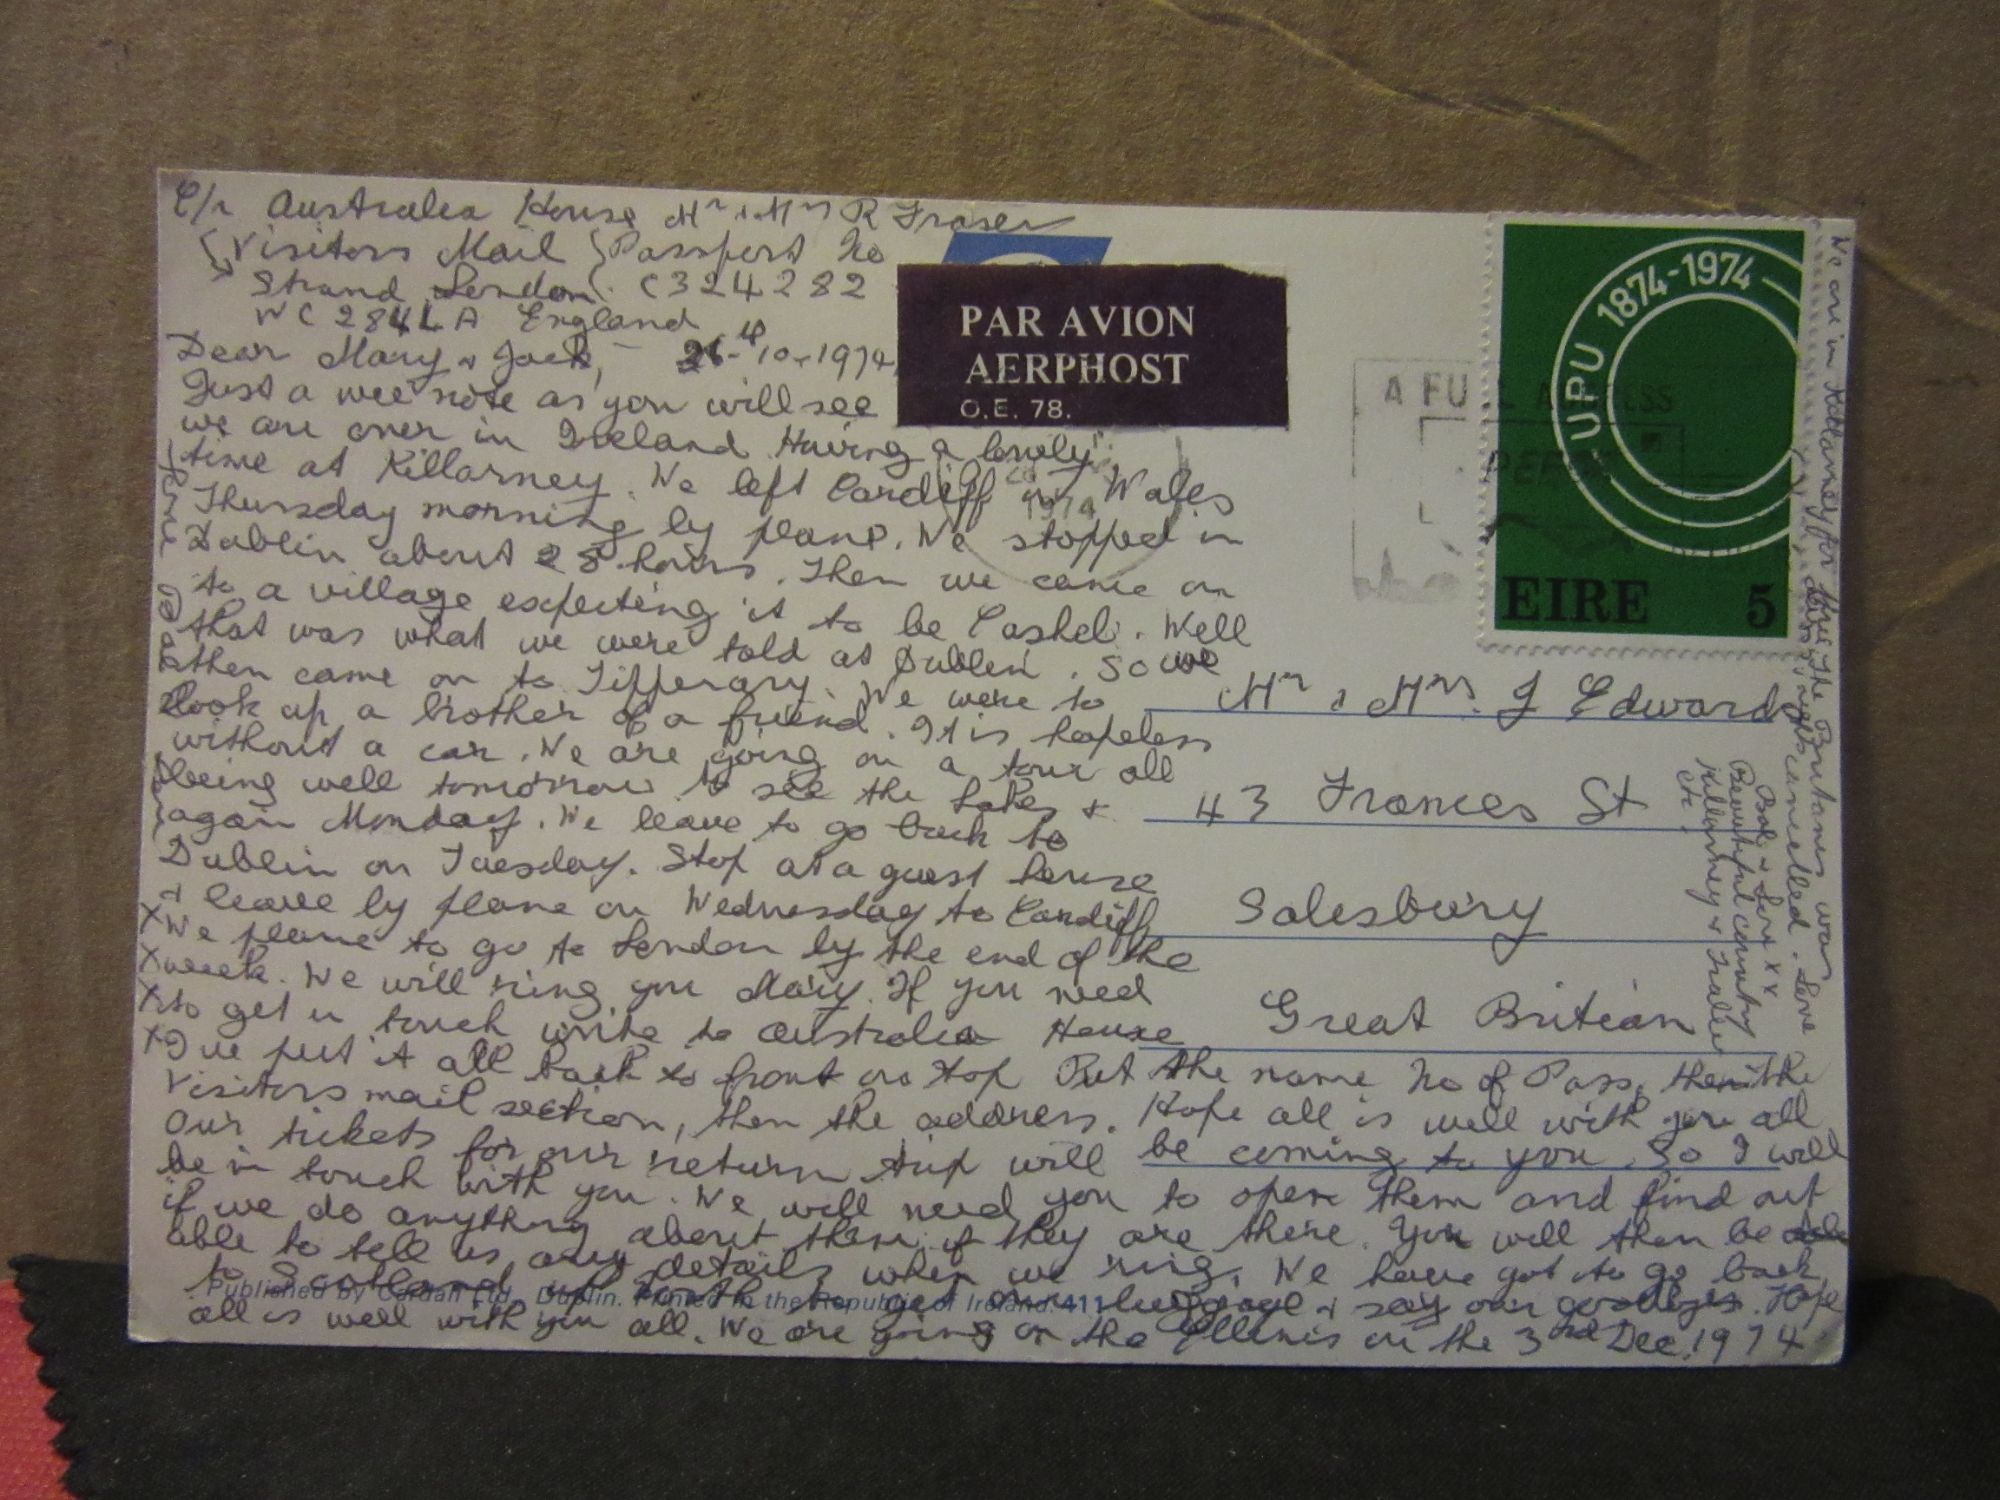 C/o Australia House Mr & Mrs R Fraser
Visitors Mail Passport No
Strand London C324282
WC2B4LA England
Dear Mary & Jack, 26-10-1974
Just a wee note as you will see
we are over in Ireland Having a lovely
time at Killarney. We left Cardiff in Wales
Thursday morning by plane. We stopped in
Dublin about 28 hours. Then we came on
to a village expecting it to be Cashel. Well
that was what we were told at Dublin. So we
then came on to Tipperary. We were to
look up a brother of a friend. It is hopeless
without a car. We are going on a tour all
being well tomorrow to see the Lakes &
again Monday. We leave to go back to
Dublin on Tuesday. Stop at a guest house
& leave by plane on Wednesday to Cardiff
X We plane to go to London by the end of the
X week. We will ring you Mary. If you need
X to get in touch write to Australia House
X I've put it all back to front on top Put the name No of Pass, then the
Visitors mail section, then the address. Hope all is well with you all
Our tickets for our return trip will be coming to you. So I will
be in touch with you. We will need you to open them and find out
if we do anything about them if they are there. You will then be
able to tell us any details when we ring. We have got to go back
to Scotland get our luggage & say our goodbyes. Hope
all is well with you all. We are going on the Ellinis on the 3rd Dec. 1974
Published by Cardall Ltd., Dublin. Printed in the Republic of Ireland. 411
PAR AVION
AERPHOST
O.E. 78.
1974
A FULL ADDRESS
UPU 1874-1974
EIRE 5
Mr & Mrs. J Edwards
43 Frances St
Salesbury
Great Britian
We are in Killarney for three
The Britanis was cancelled. Love
Bob & xx
Beautiful country
Killarney & Tralee
etc